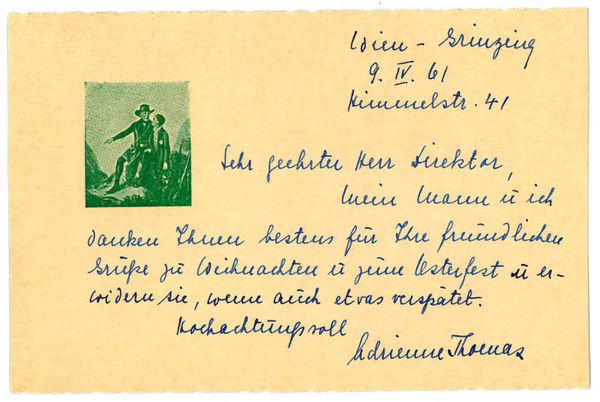 Wien - Grinzing
9. IV. 61
Himmelstr. 41
Sehr geehrter Herr Direktor,
mein Mann u ich
danken Ihnen bestens für Ihre freundlichen
Grüße zu Weihnachten u zum Osterfest u er-
widern sie, wenn auch etwas verspätet.
Hochachtungsvoll
Adrienne Thomas